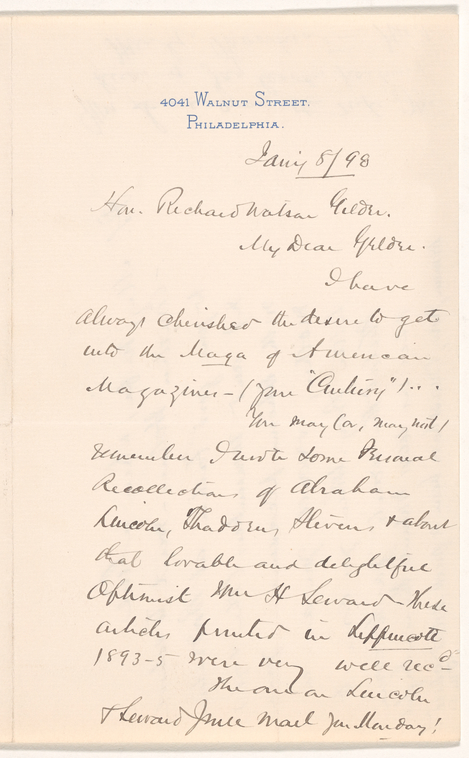 4041 WALNUT STREET.
PHILADELPHIA.
Jany 8/98
Hon. Richard Watson Gilder.
My Dear Gilder.
I have
always cherished the desire to get
into the Maga of American
Magazines - (your "Century") . . .
You may (or, may not)
remember I wrote some Personal
Recollections of Abraham
Lincoln, Thaddeus Stevens & about
that lovable and delightful
Optimist Wm H Seward - These
articles printed in Lippincott
1893-5 were very well recd -
The one on Lincoln
& Seward I will mail you Monday!